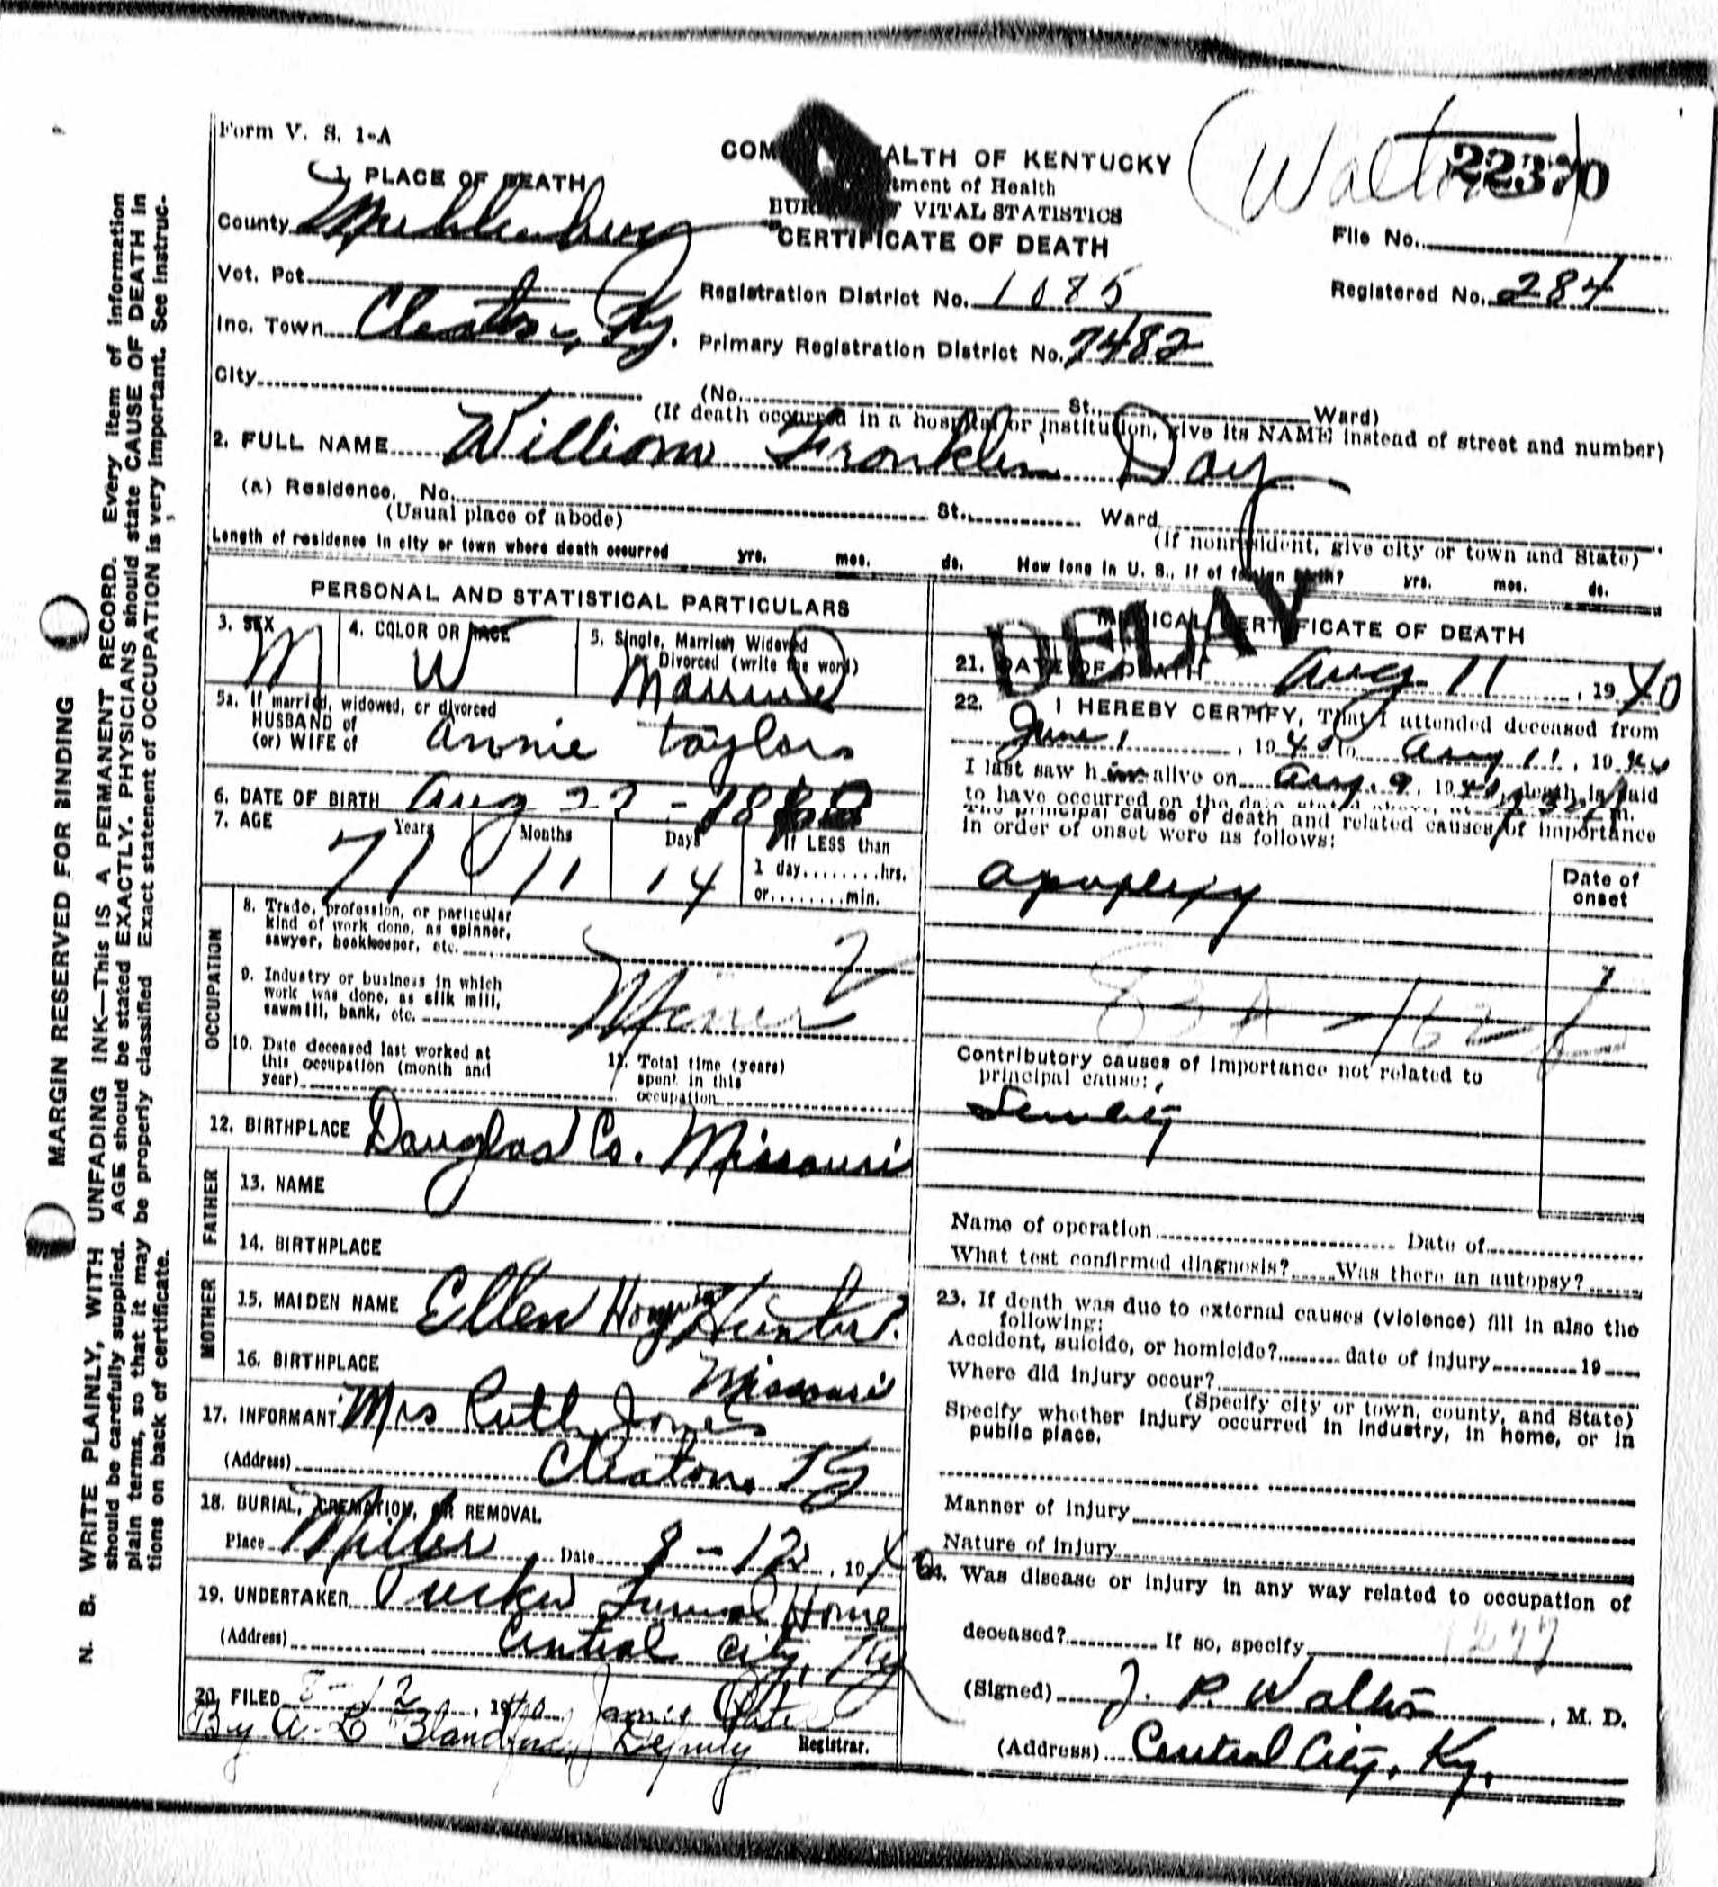 Form V. S. 1-A
1. PLACE OF DEATH
County Muhlenburg
Vot. Pct.
Inc. Town Cleaton, Ky.
City
COM ALTH OF KENTUCKY
tment of Health
BUR OF VITAL STATISTICS
CERTIFICATE OF DEATH
(Walton)
22370
File No.
Registration District No. 1085
Registered No. 284
Primary Registration District No. 7482
(No. St., Ward)
(If death occurred in a hospital or institution, give its NAME instead of street and number)
2. FULL NAME William Franklin Day
(a) Residence. No. St., Ward
(Usual place of abode) (If nonresident, give city or town and State)
Length of residence in city or town where death occurred yrs. mos. ds. How long in U. S., if of foreign birth? yrs. mos. ds.
PERSONAL AND STATISTICAL PARTICULARS
3. SEX M
4. COLOR OR RACE W
5. Single, Married Widowed or Divorced (write the word)
Married
5a. If married, widowed, or divorced
HUSBAND of
(or) WIFE of Annie Taylors
6. DATE OF BIRTH Aug 27 - 18
7. AGE Years Months Days If LESS than
77 11 14 1 day........hrs.
or........min.
OCCUPATION
8. Trade, profession, or particular
kind of work done, as spinner,
sawyer, bookkeeper, etc.
9. Industry or business in which
work was done, as silk mill,
sawmill, bank, etc. Miner
10. Date deceased last worked at
this occupation (month and
year)
11. Total time (years)
spent in this
occupation
12. BIRTHPLACE Douglas Co. Missouri
FATHER
13. NAME
14. BIRTHPLACE
MOTHER
15. MAIDEN NAME Ellen Hunter
16. BIRTHPLACE Missouri
17. INFORMANT Mrs Ruth Jones
(Address) Cleaton, Ky
18. BURIAL, CREMATION, OR REMOVAL
Place Miller Date 8-12, 1940
19. UNDERTAKER Tucker Funeral Home
(Address) Central City, Ky
20. FILED 8-12, 1940 Jamie
By A L Blandford, Deputy Registrar.
MEDICAL CERTIFICATE OF DEATH
DELAY
21. DATE OF DEATH Aug 11, 1940
22. I HEREBY CERTIFY, That I attended deceased from
June 1, 1940 to Aug 11, 1940
I last saw him alive on Aug 9, 1940, death is said
to have occurred on the date stated above, at m.
The principal cause of death and related causes of importance
in order of onset were as follows:
Date of
onset
apoplexy
83A - 162
Contributory causes of importance not related to
principal cause:
Senility
Name of operation Date of
What test confirmed diagnosis? Was there an autopsy?
23. If death was due to external causes (violence) fill in also the
following:
Accident, suicide, or homicide? date of injury 19
Where did injury occur?
(Specify city or town, county, and State)
Specify whether injury occurred in industry, in home, or in
public place.
Manner of injury
Nature of injury
24. Was disease or injury in any way related to occupation of
deceased? If so, specify
(Signed) J. P. Walton, M. D.
(Address) Central City, Ky.
MARGIN RESERVED FOR BINDING
N. B. WRITE PLAINLY, WITH UNFADING INK—This IS A PERMANENT RECORD. Every item of information
should be carefully supplied. AGE should be stated EXACTLY. PHYSICIANS should state CAUSE OF DEATH in
plain terms, so that it may be properly classified. Exact statement of OCCUPATION is very important. See instruc-
tions on back of certificate.